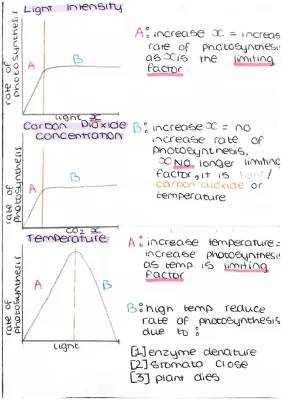 Light Intensity
rate of photosynthesis
A
B
light x
A: increase x = increas
rate of photosynthesis
as x is the limiting
factor.
Carbon Dioxide
concentration
rate of photosynthesis
A
B
CO2 x
B: increase x = no
increase rate of
photosynthesis.
x NO longer limiting
factor, it is light/
carbon dioxide or
temperature
Temperature
rate of photosynthesis
A
B
light
A: increase temperature =
increase photosynthesis
as temp is limiting
factor
B: high temp reduce
rate of photosynthesis
due to:
[1] enzyme denature
[2] stomata close
[3] plant dies